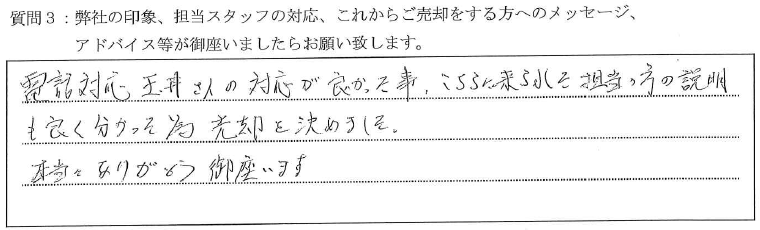 質問３：弊社の印象、担当スタッフの対応、これからご売却をする方へのメッセージ、
アドバイス等が御座いましたらお願い致します。
電話対応 玉井さんの対応が良かった事、こちらに来られた担当の方の説明
も良く分かった為 売却を決めました。
本当にありがとう御座います